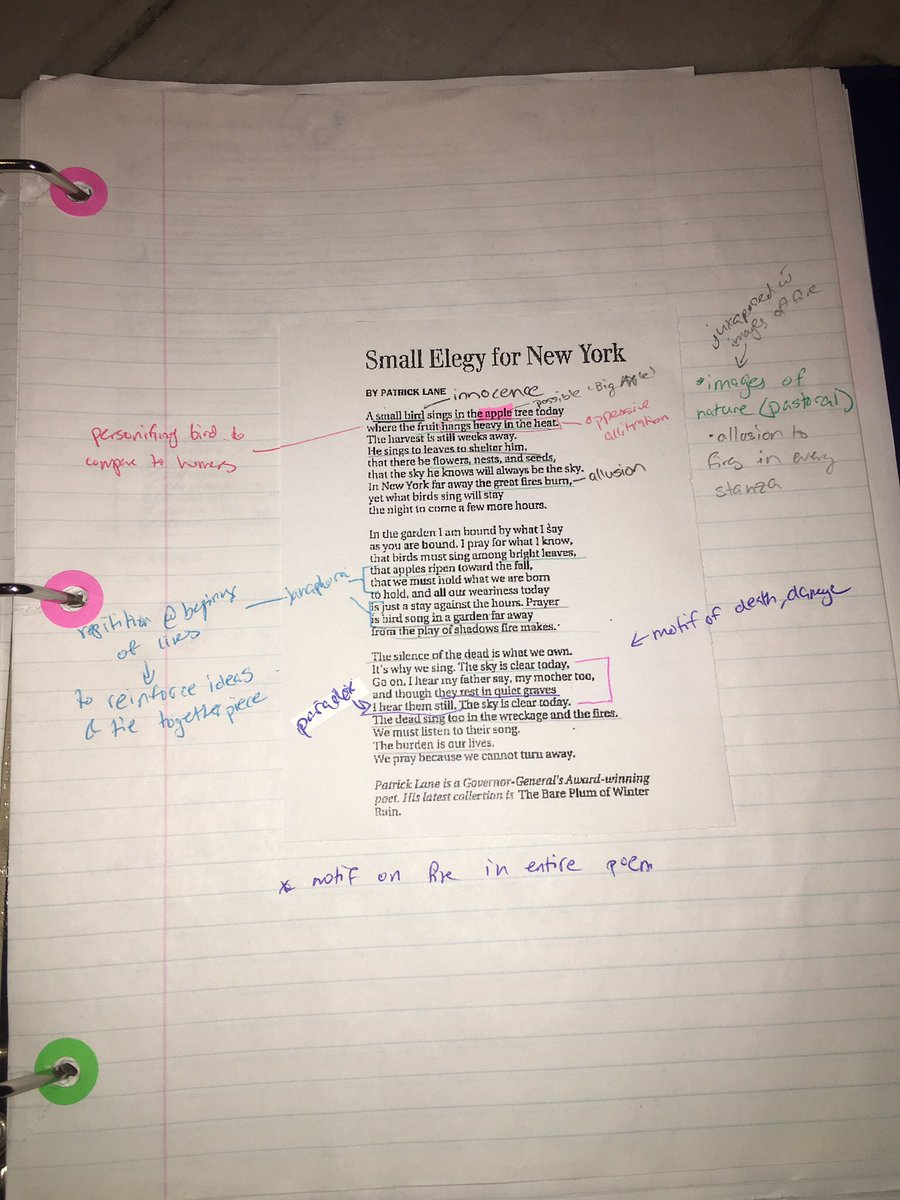 Small Elegy for New York
BY PATRICK LANE
A small bird sings in the apple tree today
where the fruit hangs heavy in the heat.
The harvest is still weeks away.
He sings to leaves to shelter him,
that there be flowers, nests, and seeds,
that the sky he knows will always be the sky.
In New York far away the great fires burn,
yet what birds sing will stay
the night to come a few more hours.
In the garden I am bound by what I say
as you are bound. I pray for what I know,
that birds must sing among bright leaves,
that apples ripen toward the fall,
that we must hold what we are born
to hold, and all our weariness today
is just a stay against the hours. Prayer
is bird song in a garden far away
from the play of shadows fire makes.
The silence of the dead is what we own.
It's why we sing. The sky is clear today.
Go on. I hear my father say, my mother too,
and though they rest in quiet graves
I hear them still. The sky is clear today.
The dead sing too in the wreckage and the fires.
We must listen to their song.
The burden is our lives.
We pray because we cannot turn away.
Patrick Lane is a Governor-General's Award-winning
poet. His latest collection is The Bare Plum of Winter
Rain.
innocence
possible (Big Apple)
oppressive
allitration
allusion
personifing bird to
compare to humans
anaphora
repitition @ begining
of lines
to reinforce ideas
& tie together piece
paradox
juxaposed w
images of fire
*images of
nature (pastoral)
• allusion to
fires in every
stanza
motif of death, damage
* motif on fire in entire poem